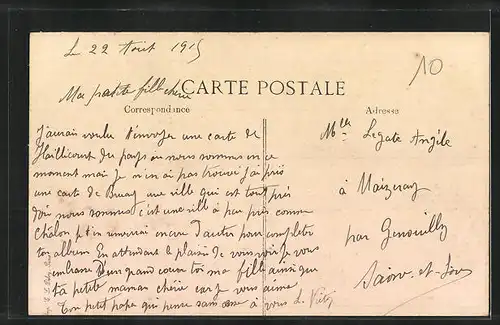 Le 22 Août 1915
10
Ma petite fille chérie
CARTE POSTALE
Correspondance
Adresse
J'aurais voulu t'envoyer une carte de
Haillicourt du pays ou nous sommes en ce
moment mais je n'en ai pas trouvé j'ai pris
une carte de Bruay une ville qui est tout près
d'où nous sommes c'est une ville à peu près comme
Châlon je t'en enverrai encore d'autres pour compléter
ton album En attendant le plaisir de vous voir je vous
embrasse d'un grand coeur toi ma fille ainsi que
ta petite maman chérie car je vous aime
Ton petit papa qui pense sans cesse à vous L.
Mlle Legate Angèle
à Maizeray
par Genouilly
Saône-et-Loire